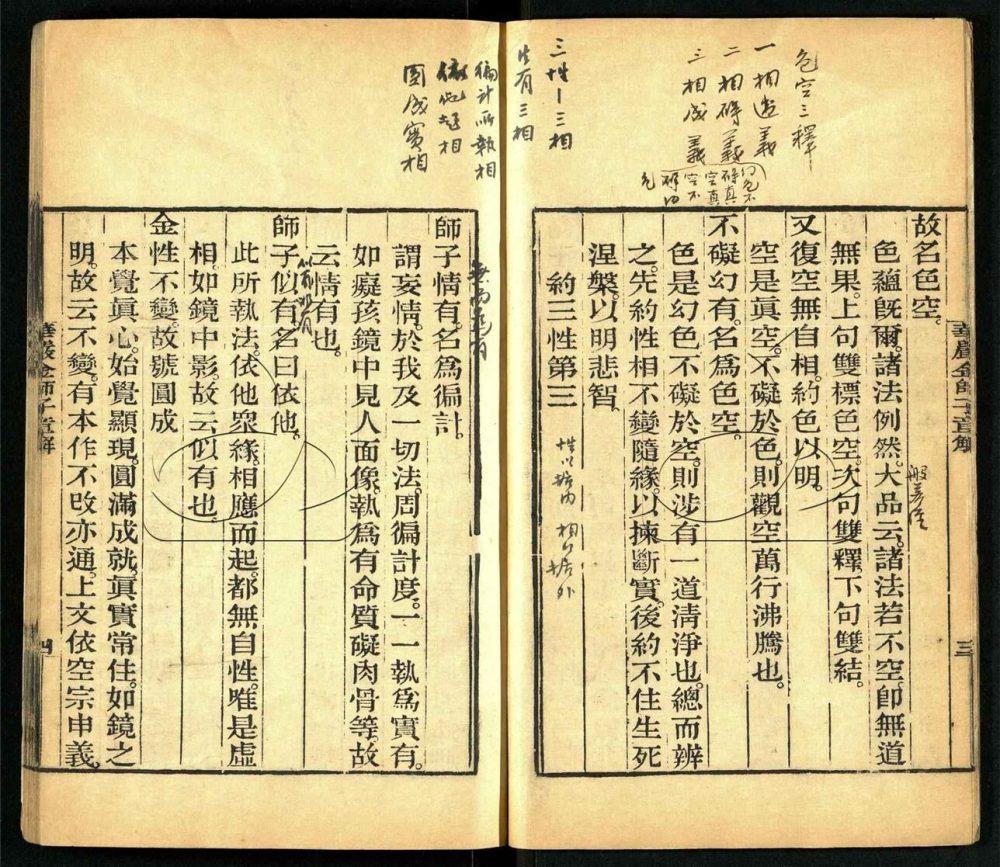 色空三釋
一相違義
二相碍義
三相成義
三性—三相
皆有三相
徧計所執相
依他起相
圓成實相
故名色空。
色蘊旣爾。諸法例然。大品云。諸法若不空。卽無道
無果。上句雙標色空。次句雙釋。下句雙結。
又復空無自相。約色以明。
空是眞空。不礙於色。則觀空萬行沸騰也。
不礙幻有。名爲色空。
色是幻色。不礙於空。則涉有一道淸淨也。總而辨
之。先約性相不變隨緣。以揀斷實。後約不住生死
涅槃。以明悲智。
約三性第三
般若經
性以據內 相以據外
華嚴金師子章解
三
師子情有。名爲徧計。
謂妄情於我及一切法。周徧計度。一一執爲實有。
如癡孩鏡中見人面像。執爲有命質礙肉骨等。故
云情有也。
師子似有。名曰依他。
此所執法。依他眾緣。相應而起。都無自性。唯是虛
相。如鏡中影。故云似有也。
金性不變。故號圓成
本覺眞心。始覺顯現。圓滿成就。眞實常住。如鏡之
明。故云不變。有本作不改亦通。上文依空宗申義。
華嚴金師子章解
四